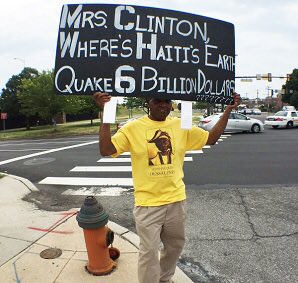 Mrs. Clinton,
Where's Haiti's Earth
Quake 6 Billion Dollars
???????
DESSALINES